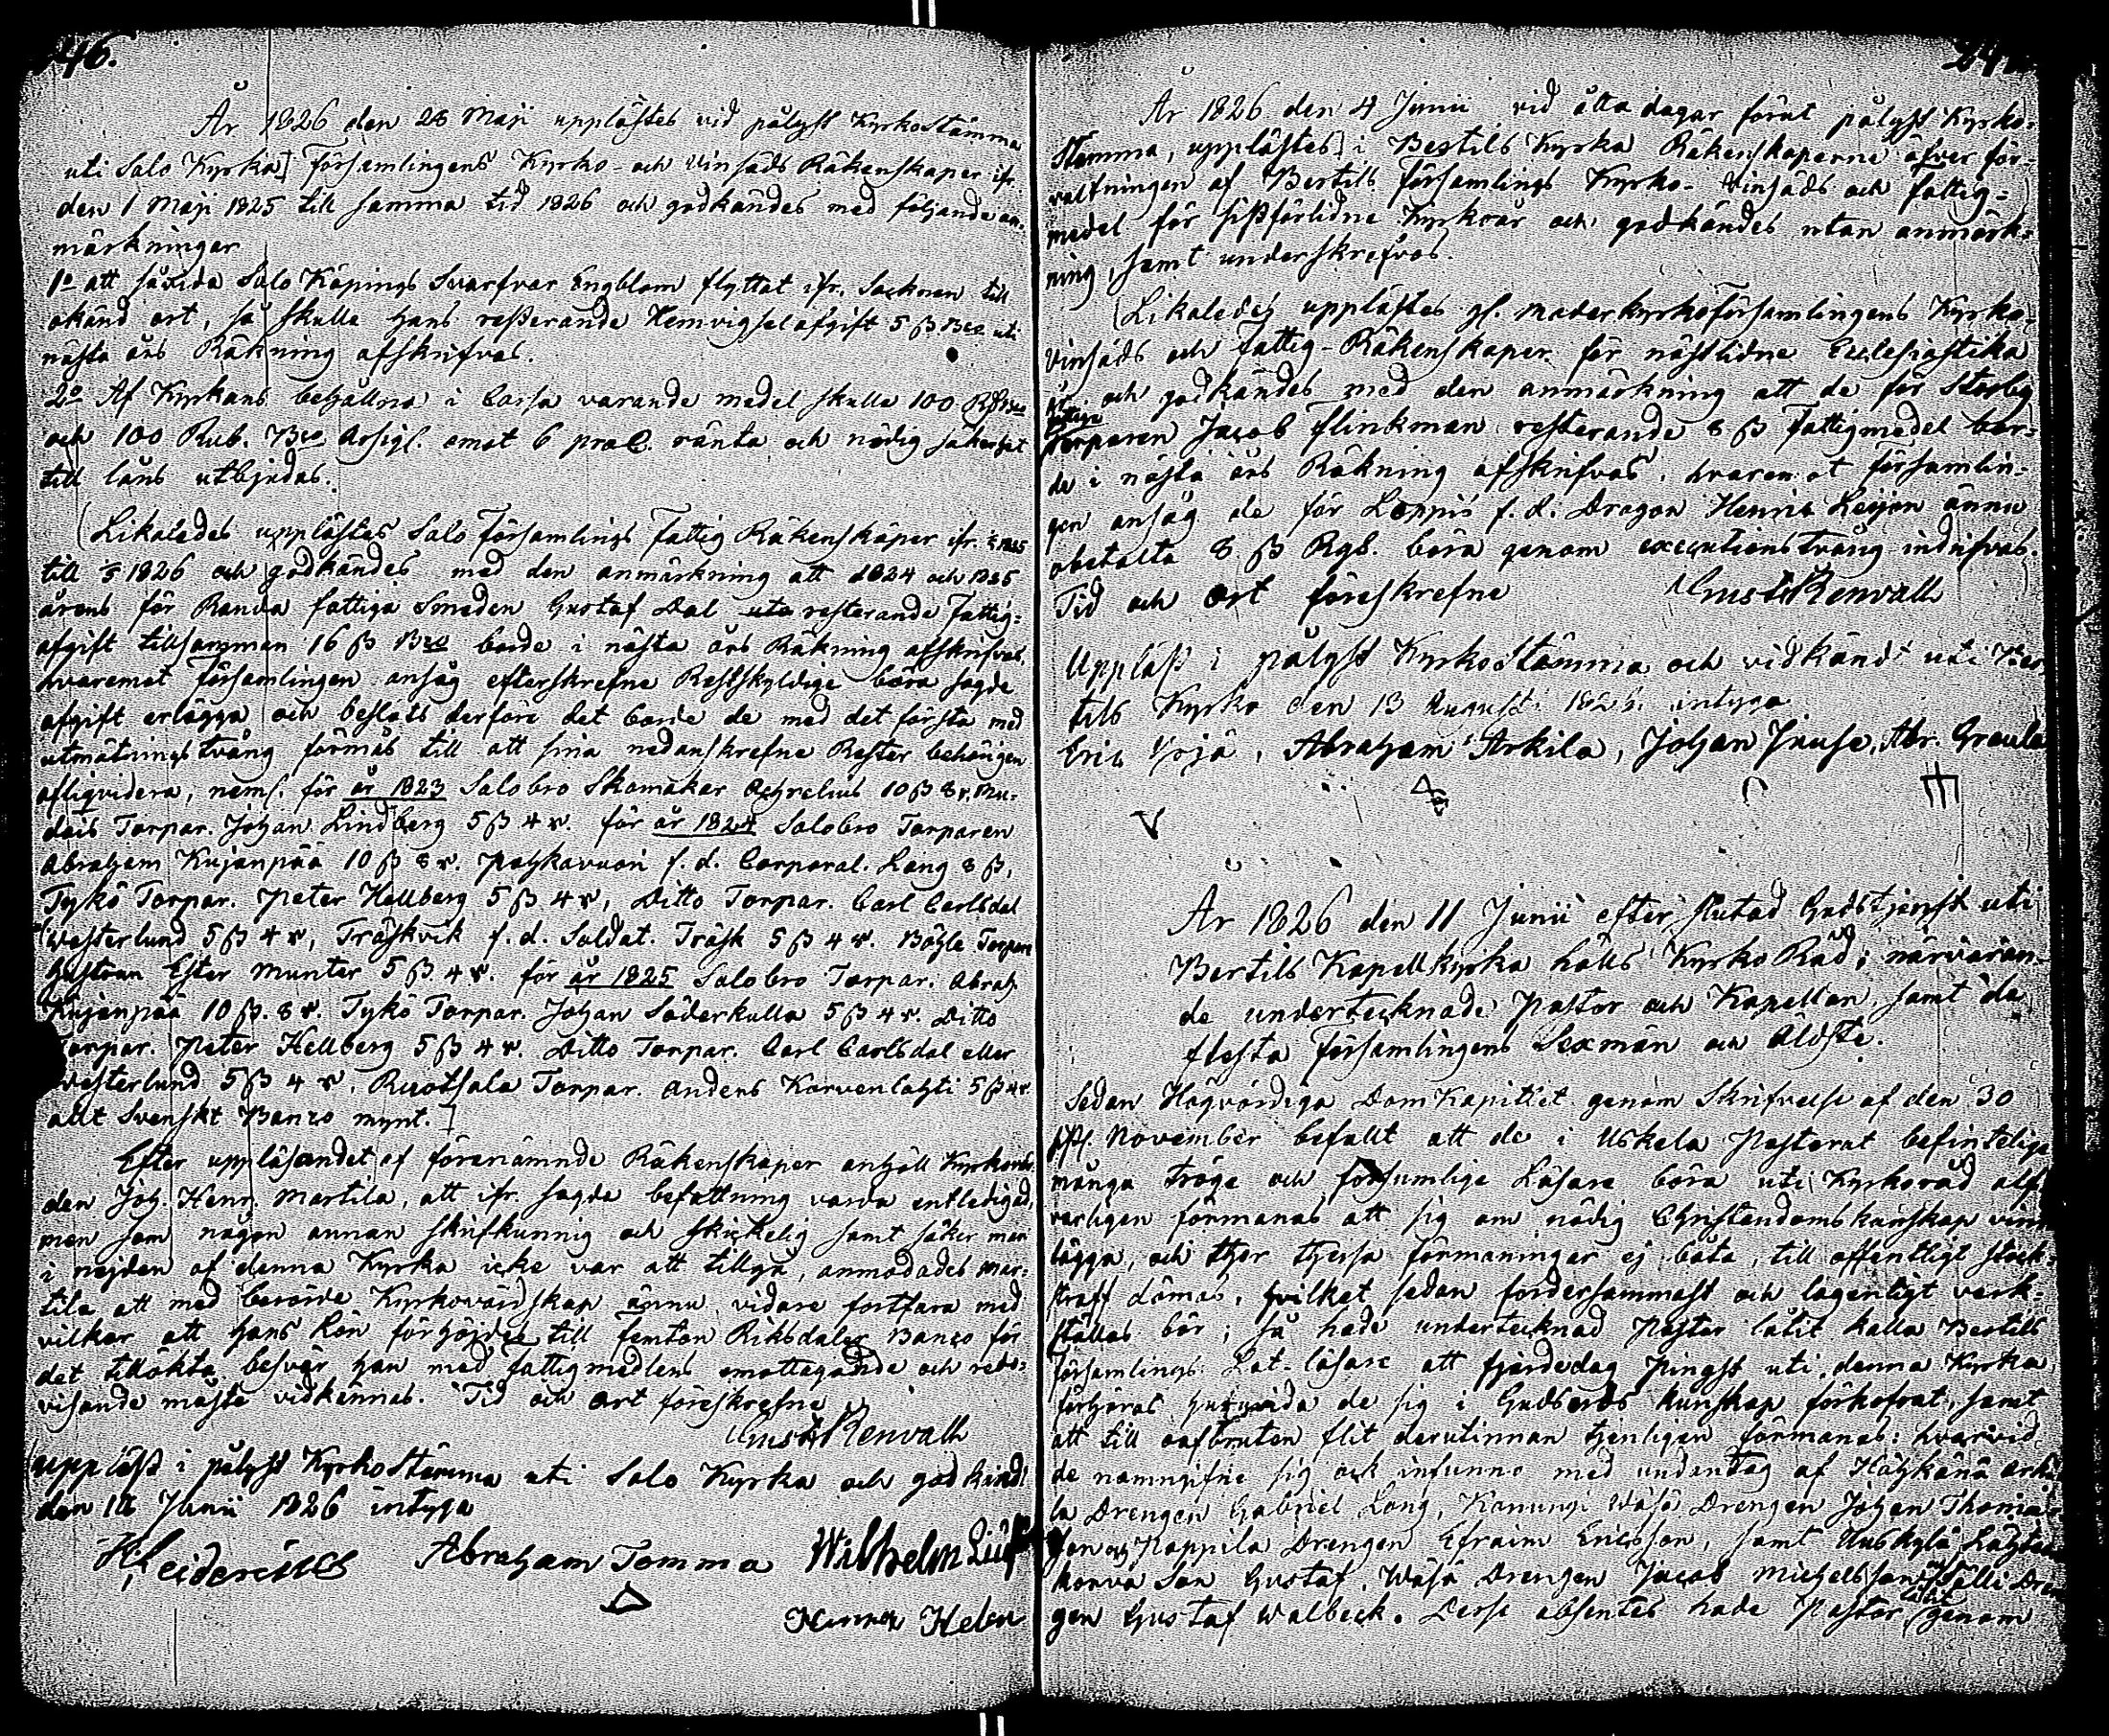 46.
År 1826 den 28 Maji upplästes vid pålyst KyrkoStämma
uti Salo Kyrka Församlingens Kyrko- och Vinsäds Räkenskaper ifr.
den 1 Maji 1825 till samma tid 1826 och godkändes med följande an-
märkningar
1o att såvida Salo Köpings Svarfvar Engblom flyttat ifr. Socknen till
okänd ort, så skulle hans resterande Hemvigselafgift 5 β Bco uti
nästa års Räkning afskrifvas.
2o Af Kyrkans behållna i Cassa varande medel skulle 100 RD Bco
och 100 Rub. Bco Assigl. emot 6 proC. ränta och nödig säkerhet
till låns utbjudas.
Likaledes upplästes Salo Församlings Fattig Räkenskaper ifr. 1/5 1825
till 1/5 1826 och godkändes med den anmärkning att 1824 och 1825
årens för Randa fattiga Smeden Gustaf Dal resterande Fattig-
afgift tillsamman 16 β Bco borde i nästa års Räkning afskrifvas,
hvaremot Församlingen ansåg efterskrefne Restskyldige böra sagde
afgift erlägga och beslöts derföre det borde de med det första med
utmätningstvång förmås till att sina nedanskrefne Rester behörigen
afliqvidera, neml. för år 1823 Salobro Skomakar 10 β 8 r. Mu-
dais Torpar. Johan Lindberg 5 β 4 r. för år 1824 Salobro Torparen
Abraham Kujanpää 10 β 8 r. Pahkavuori f. d. Corporal. Lang 8 β,
Tykö Torpar. Peter Hellberg 5 β 4 r, Ditto Torpar. Carl Carlsdal
Westerlund 5 β 4 r, Träskvik f. d. Soldat. Träsk 5 β 4 r. Böhle Torpare
Hustrun Ester Munter 5 β 4 r. för år 1825 Salobro Torpar. Abrah.
Kujanpää 10 β. 8 r. Tykö Torpar. Johan Söderkulla 5 β 4 r. Ditto
Torpar. Peter Hellberg 5 β 4 r. Ditto Torpar. Carl Carlsdal eller
Westerlund 5 β 4 r, Ruotsala Torpar. Anders Karvenlahti 5 β 4 r.
allt Svenskt Banco mynt.
Efter uppläsandet af förenämnde Räkenskaper anhöll Kyrkovär-
den Joh. Henr. Martila, att ifr. sagda befattning varda entledigad,
men som någon annan skrifkunnig och skickelig samt säker man
i nejden af denna Kyrka icke var att tillgå, anmodades Mar-
tila att med berörde Kyrkovärdskap ännu vidare fortfara med
vilkor att hans Lön förhöjdes till femton Riksdaler Banco för
det tillökta besvär han med fattigmedlens emottagande och redo-
visande måste vidkännas. Tid och ort föreskrefne
Gust. Renvall
Uppläst i pålyst KyrkoStämma uti Salo Kyrka och godkändt
den 18 Junii 1826 intyga
Heidenius Abraham Tomma Wilhelm
Henrik Helen
År 1826 den 4 Junii vid åtta dagar förut pålyst Kyrko-
Stämma, upplästes i Bertils Kyrka Räkenskaperne öfver för-
valtningen af Bertils Församlings Kyrko- Vinsäds och fattig-
medel för sistförlidne Kyrkoår och godkändes utan anmärk-
ning, samt underskrefvos.
Likaledes upplästes gl. moderkyrkoförsamlingens Kyrko-
Vinsäds och Fattig-Räkenskaper för nästlidne Ecclesiastika
år och godkändes med den anmärkning att de för Storby
fattige
Torparen Jacob Flinkman resterande 8 β fattigmedel bor-
de i nästa års Räkning afskrifvas, hvaremot församlin-
gen ansåg de för Loppis f. d. Dragon Henric Leijon ännu
obetalta 8 β Rgs. böra genom executionstvång indrifvas.
Tid och ort föreskrefne Gust. Renvall
Uppläst i pålyst KyrkoStämma och vidkändt uti Ber-
tils Kyrka den 13 Augusti 1826 intyga
Eric Yrjä, Abraham Arkila, Johan Juuse, Abr. Graula
År 1826 den 11 Junii efter slutad Gudstjenst uti
Bertils Kapellkyrka hölls KyrkoRåd; närvaran-
de undertecknade Pastor och Kapellan, samt de
flesta Församlingens Sexmän och Äldste.
Sedan Högvördiga DomKapitlet genom Skrifvelse af den 30
November befallt att de i Uskela Pastorat befintelige
många tröge och försumlige Läsare böra uti Kyrkoråd alf-
varligen förmanas att sig om nödig Christendomskunskap vinn-
lägga, och ther thessa förmaningar ej båta, till offentligt stock-
straff dömas, hvilket sedan fordersammast och lagenligt verk-
ställas bör; så hade undertecknad Pastor låtit kalla Bertils
församlings Lat-läsare att fjerdedag Pingst uti denna Kyrka
förhöras huruvida de sig i Gudsords Kunskap förkofrat, samt
att till oafbruten flit derutinnan tjenligen förmanas: hvarvid
de namngifne sig ock infunno med undantag af Häyhänä Arki-
la Drengen Gabriel Lang, Konungi Wäsä Drengen Johan Thomas-
son och Kappila Drengen Efraim Ericsson, samt
Son Gustaf, Wäsä Drengen Jacob Michelsson och Talli Dren-
gen Gustaf Walbeck. Desse absentes hade Pastor låtit genom